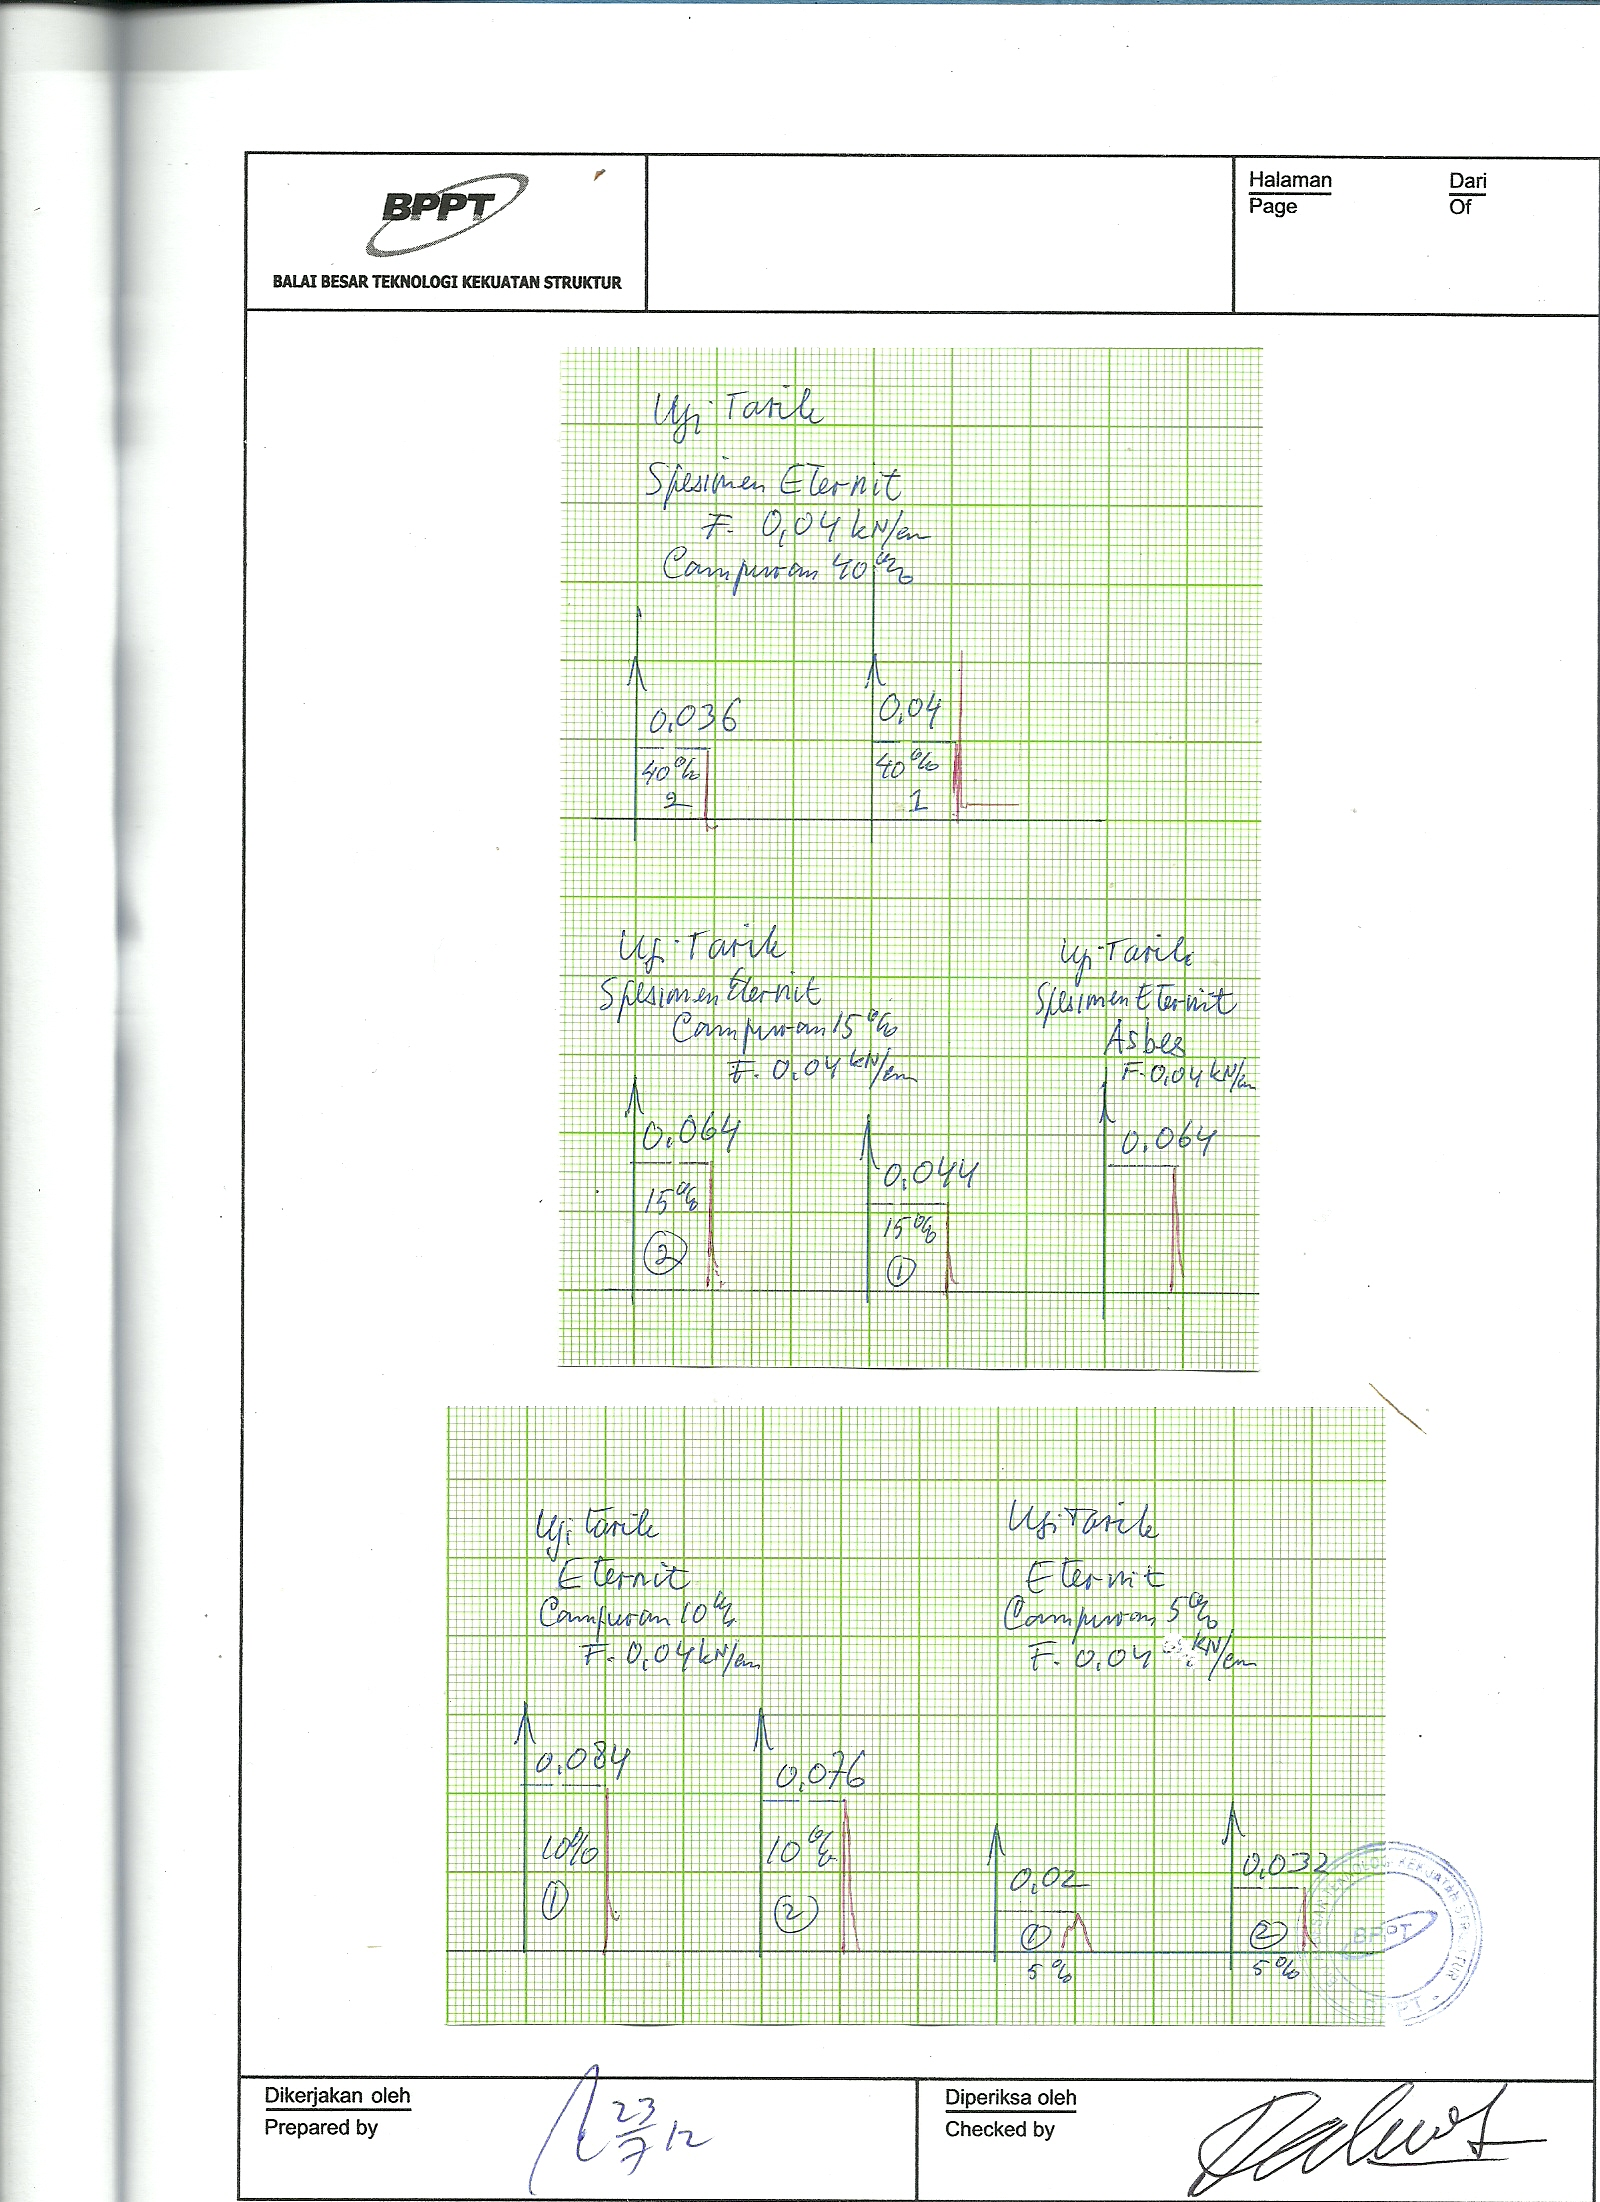 BPPT
BALAI BESAR TEKNOLOGI KEKUATAN STRUKTUR
Halaman Dari
Page Of
Uji Tarik
Spesimen Eternit
F. 0,04 kN/cm
Campuran 40%
0,036
40%
2
0,04
40%
1
Uji Tarik
Spesimen Eternit
Campuran 15%
F. 0,04 kN/cm
0,064
15%
2
0,044
15%
1
Uji Tarik
Spesimen Eternit
Asbes
F. 0,04 kN/cm
0,064
Uji Tarik
Eternit
Campuran 10%
F. 0,04 kN/cm
0,084
10%
1
0,076
10%
2
Uji Tarik
Eternit
Campuran 5%
F. 0,04 kN/cm
0,02
1
5%
0,032
2
5%
BPPT
Dikerjakan oleh
Prepared by
23/7 12
Diperiksa oleh
Checked by